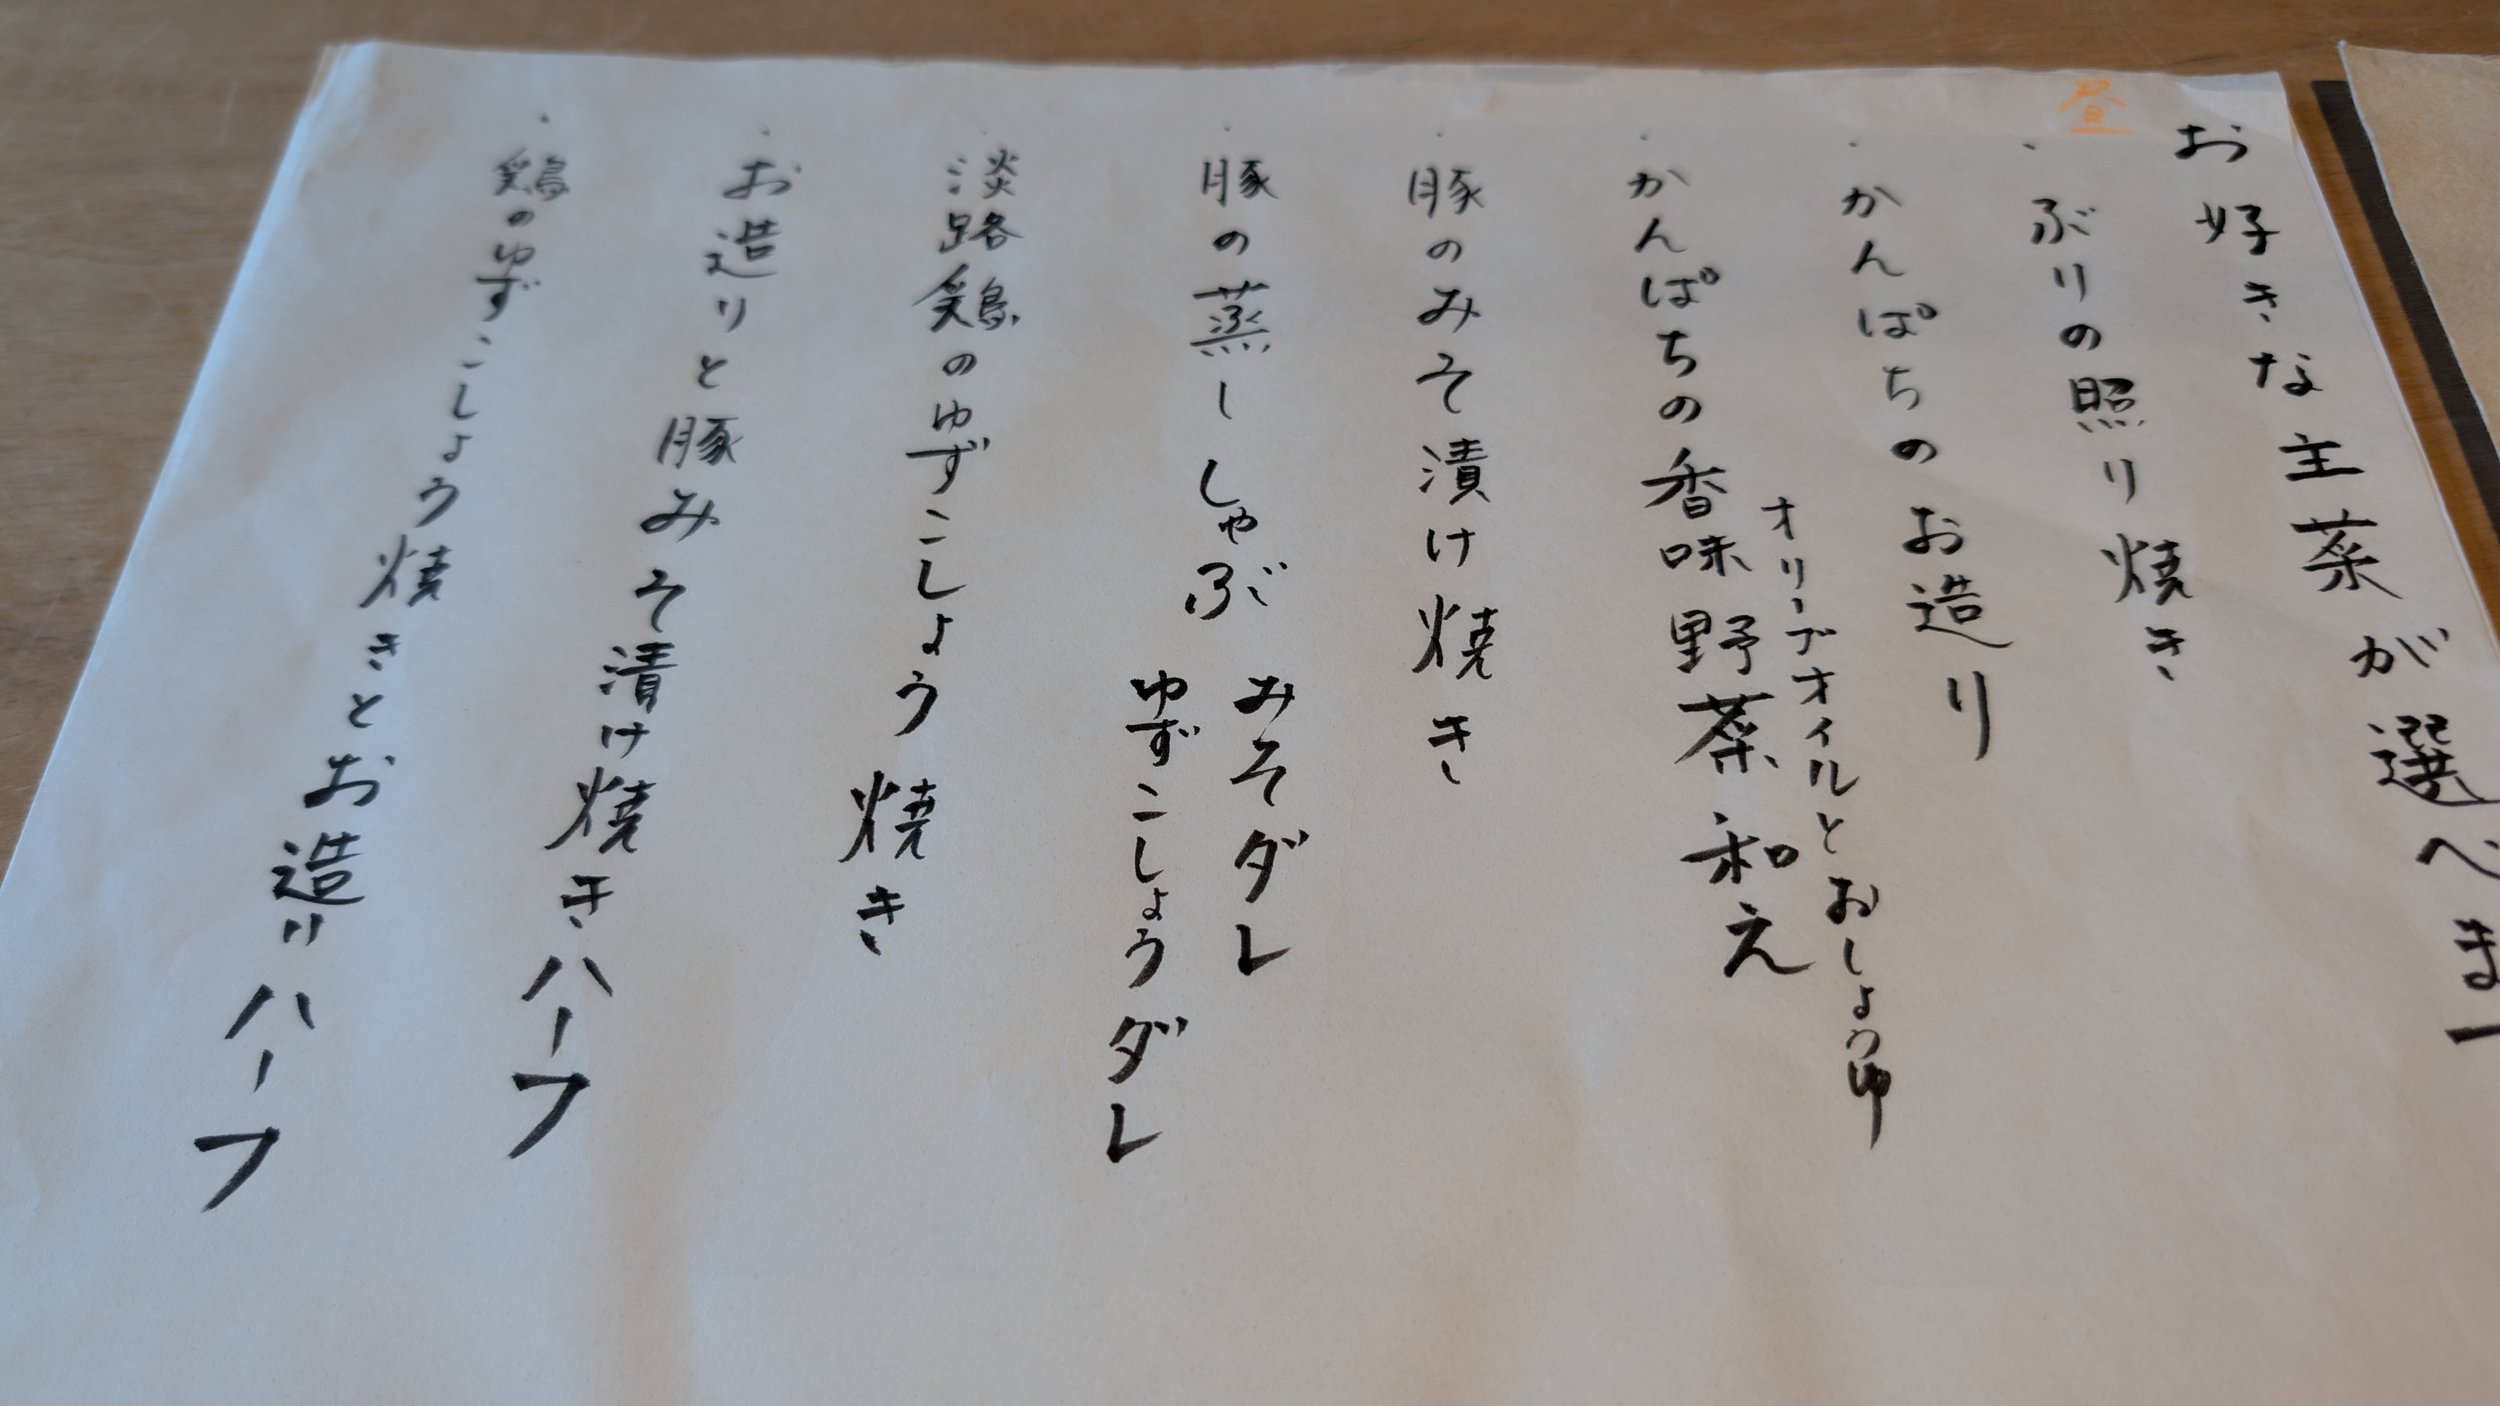 昼
お好きな主菜が選べま
・ぶりの照り焼き
・かんぱちのお造り
・かんぱちの香味野菜和え
オリーブオイルとおしょうゆ
・豚のみそ漬け焼き
・豚の蒸ししゃぶ
みそダレ
ゆずこしょうダレ
・淡路鶏のゆずこしょう焼き
・お造りと豚みそ漬け焼きハーフ
・鶏のゆずこしょう焼きとお造りハーフ